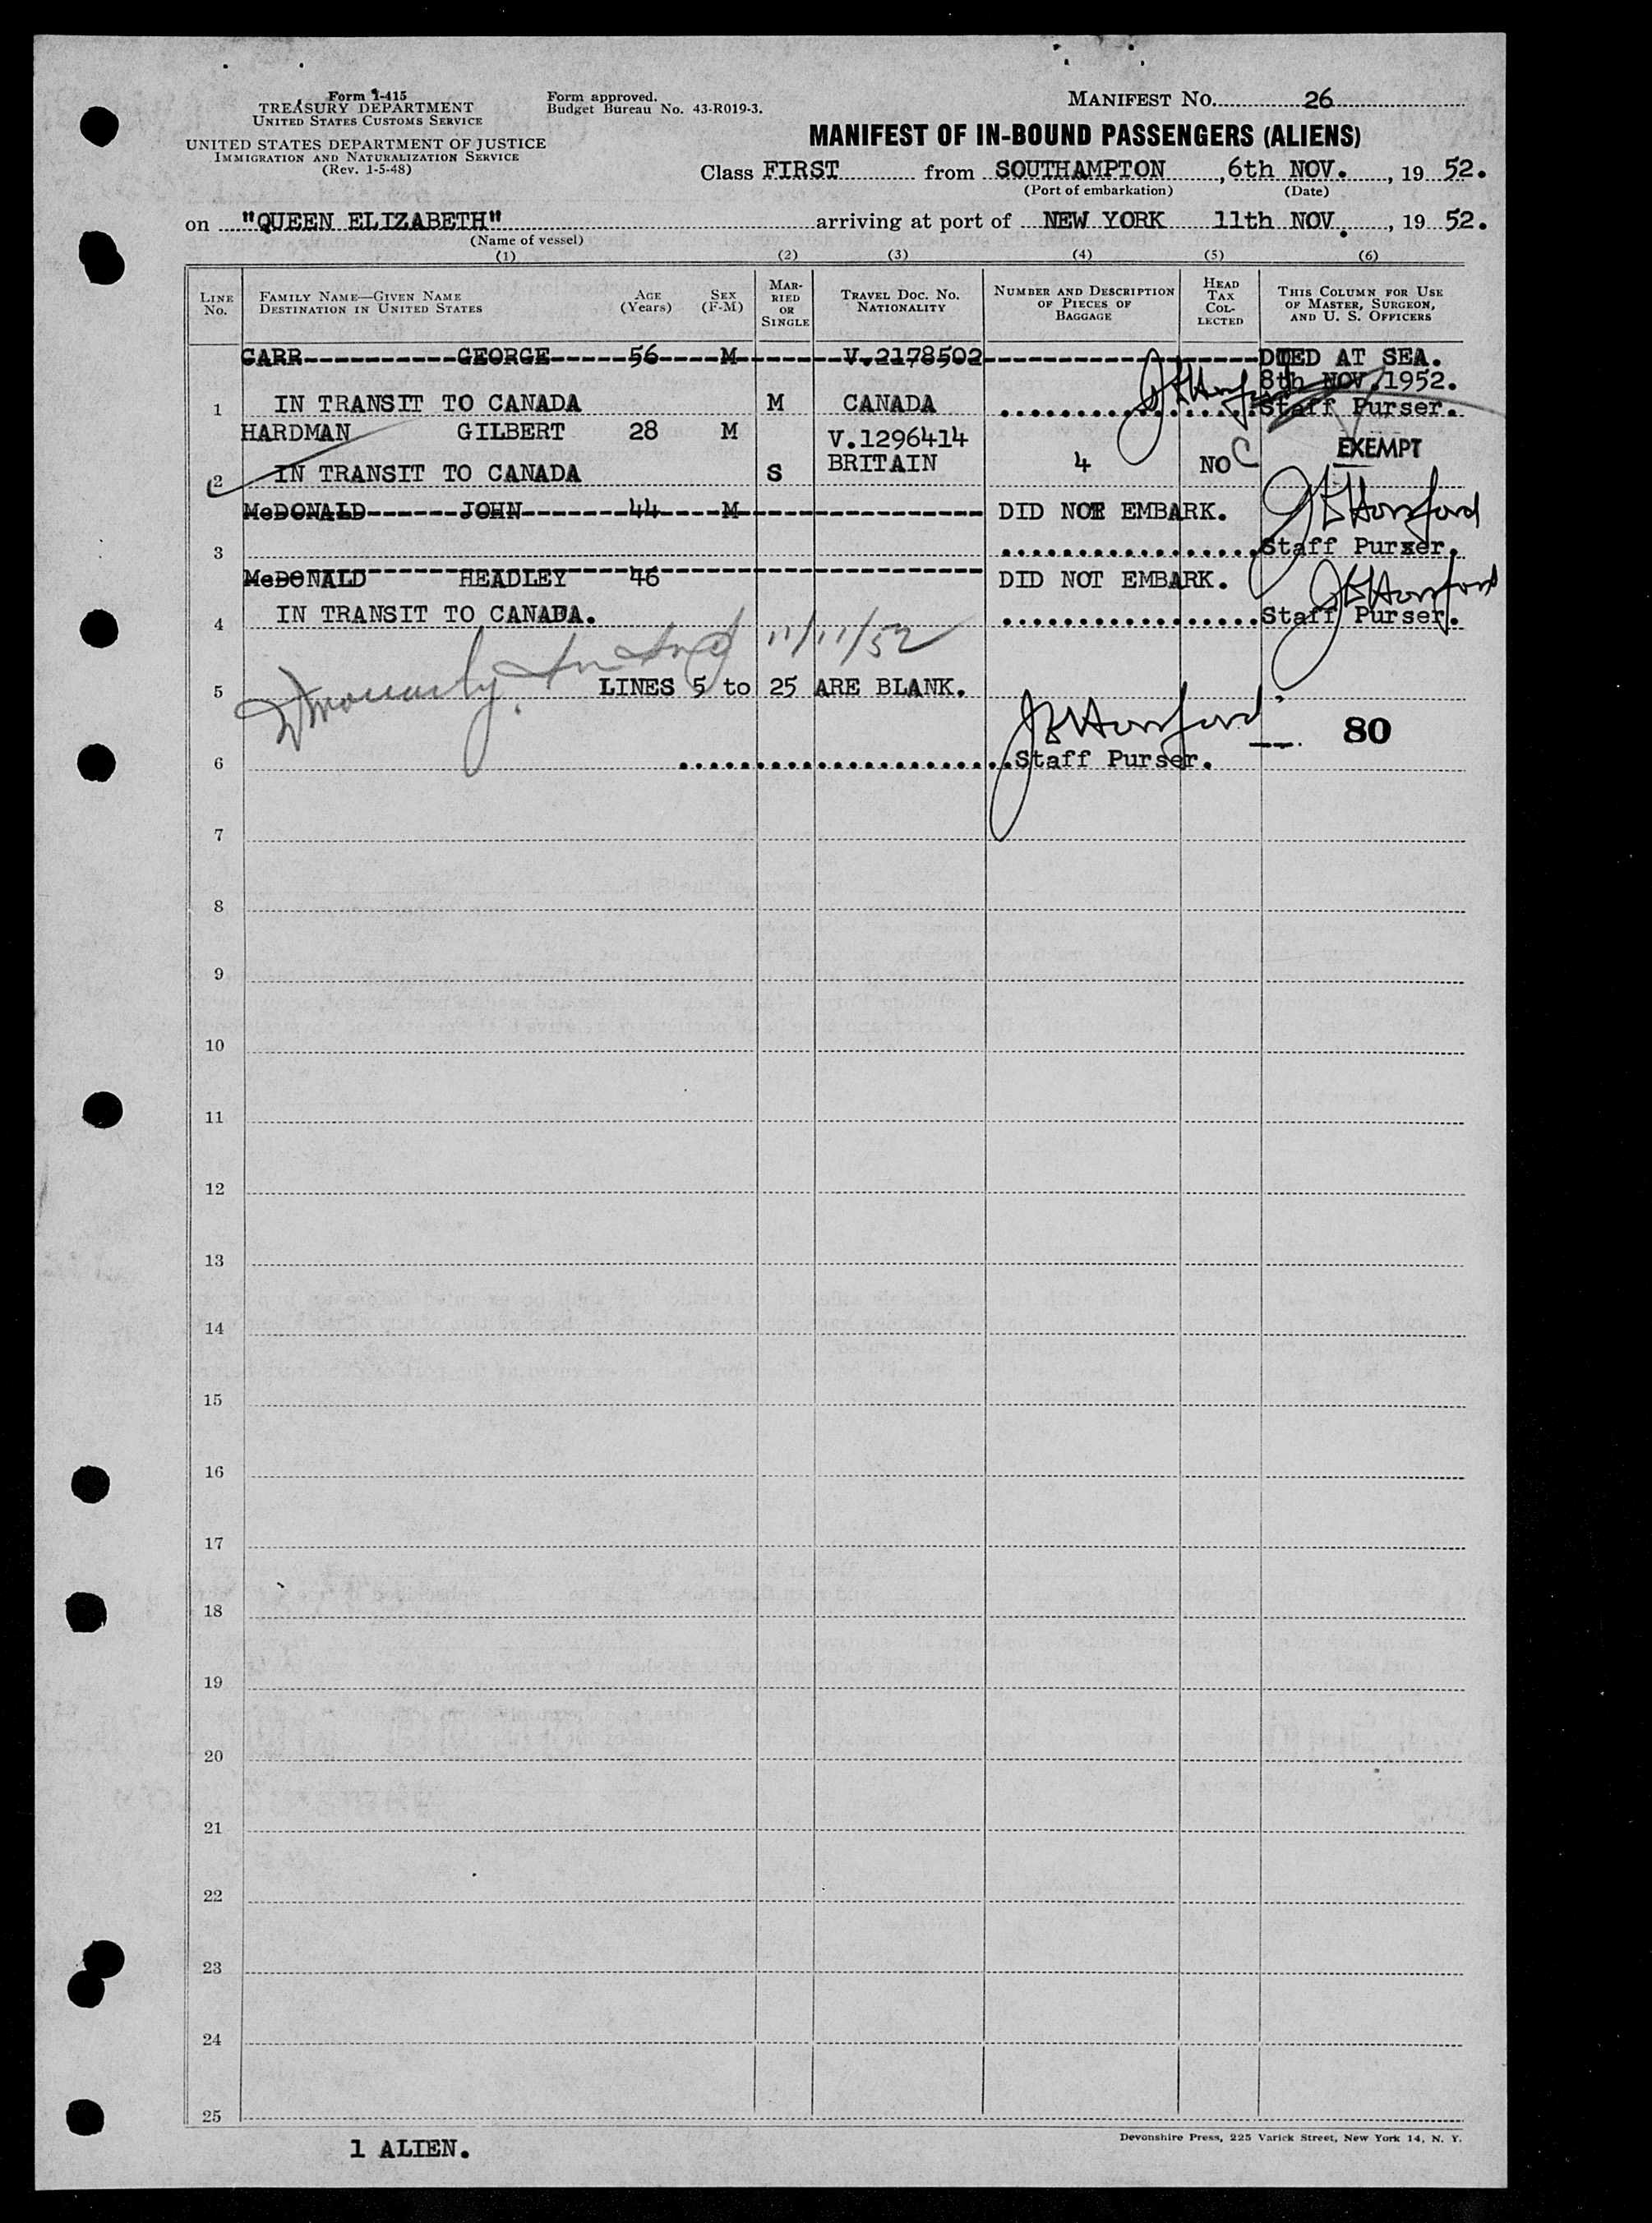 Form I-415
TREASURY DEPARTMENT
UNITED STATES CUSTOMS SERVICE
UNITED STATES DEPARTMENT OF JUSTICE
IMMIGRATION AND NATURALIZATION SERVICE
(Rev. 1-5-48)
Form approved.
Budget Bureau No. 43-R019-3.
MANIFEST NO. 26
MANIFEST OF IN-BOUND PASSENGERS (ALIENS)
Class FIRST from SOUTHAMPTON, 6th NOV., 19 52.
(Port of embarkation) (Date)
on "QUEEN ELIZABETH" arriving at port of NEW YORK 11th NOV., 19 52.
(Name of vessel)
(1) (2) (3) (4) (5) (6)
LINE NO. FAMILY NAME—GIVEN NAME DESTINATION IN UNITED STATES AGE (Years) SEX (F-M) MARRIED OR SINGLE TRAVEL DOC. NO. NATIONALITY NUMBER AND DESCRIPTION OF PIECES OF BAGGAGE HEAD TAX COLLECTED THIS COLUMN FOR USE OF MASTER, SURGEON, AND U. S. OFFICERS
CARR GEORGE 56 M V.2178502 DIED AT SEA.
8th NOV.1952.
1 IN TRANSIT TO CANADA M CANADA Staff Purser.
HARDMAN GILBERT 28 M V.1296414 EXEMPT
2 IN TRANSIT TO CANADA S BRITAIN 4 NO C
McDONALD JOHN 44 M DID NOT EMBARK. JBHorsford
3 Staff Purser.
McDONALD HEADLEY 46 DID NOT EMBARK. JBHorsford
4 IN TRANSIT TO CANADA. Staff Purser.
11/11/52
5 LINES 5 to 25 ARE BLANK.
JBHorsford 80
6 Staff Purser.
7
8
9
10
11
12
13
14
15
16
17
18
19
20
21
22
23
24
25
Devonshire Press, 225 Varick Street, New York 14, N. Y.
1 ALIEN.